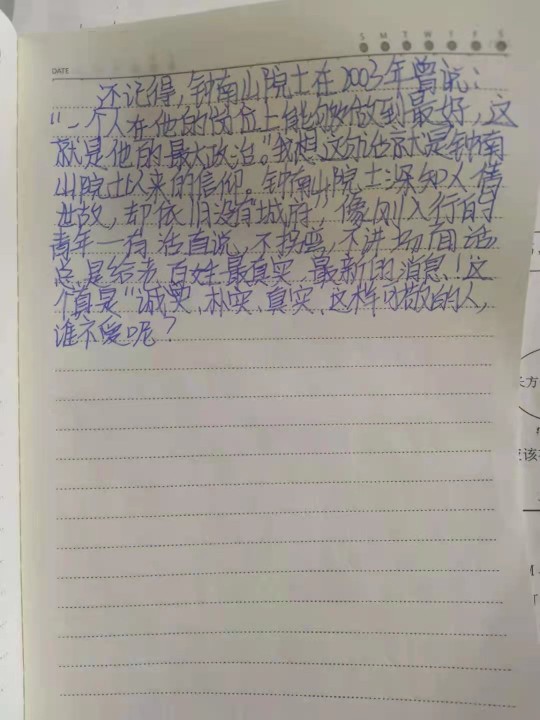 S M T W T F S
DATE
还记得,钟南山院士在2003年曾说:
“一个人在他的岗位上能够做到最好,这
就是他的最大政治。”我想,这句话就是钟南
山院士以来的信仰。钟南山院士深知人情
世故,却依旧没有“城府”,像刚入行的
青年一有话直说、不拐弯,不讲场面话
总是给老百姓最真实、最新的消息!这
个真是“诚实、朴实、真实,这样可敬的人,
谁不爱呢?
长方
应该